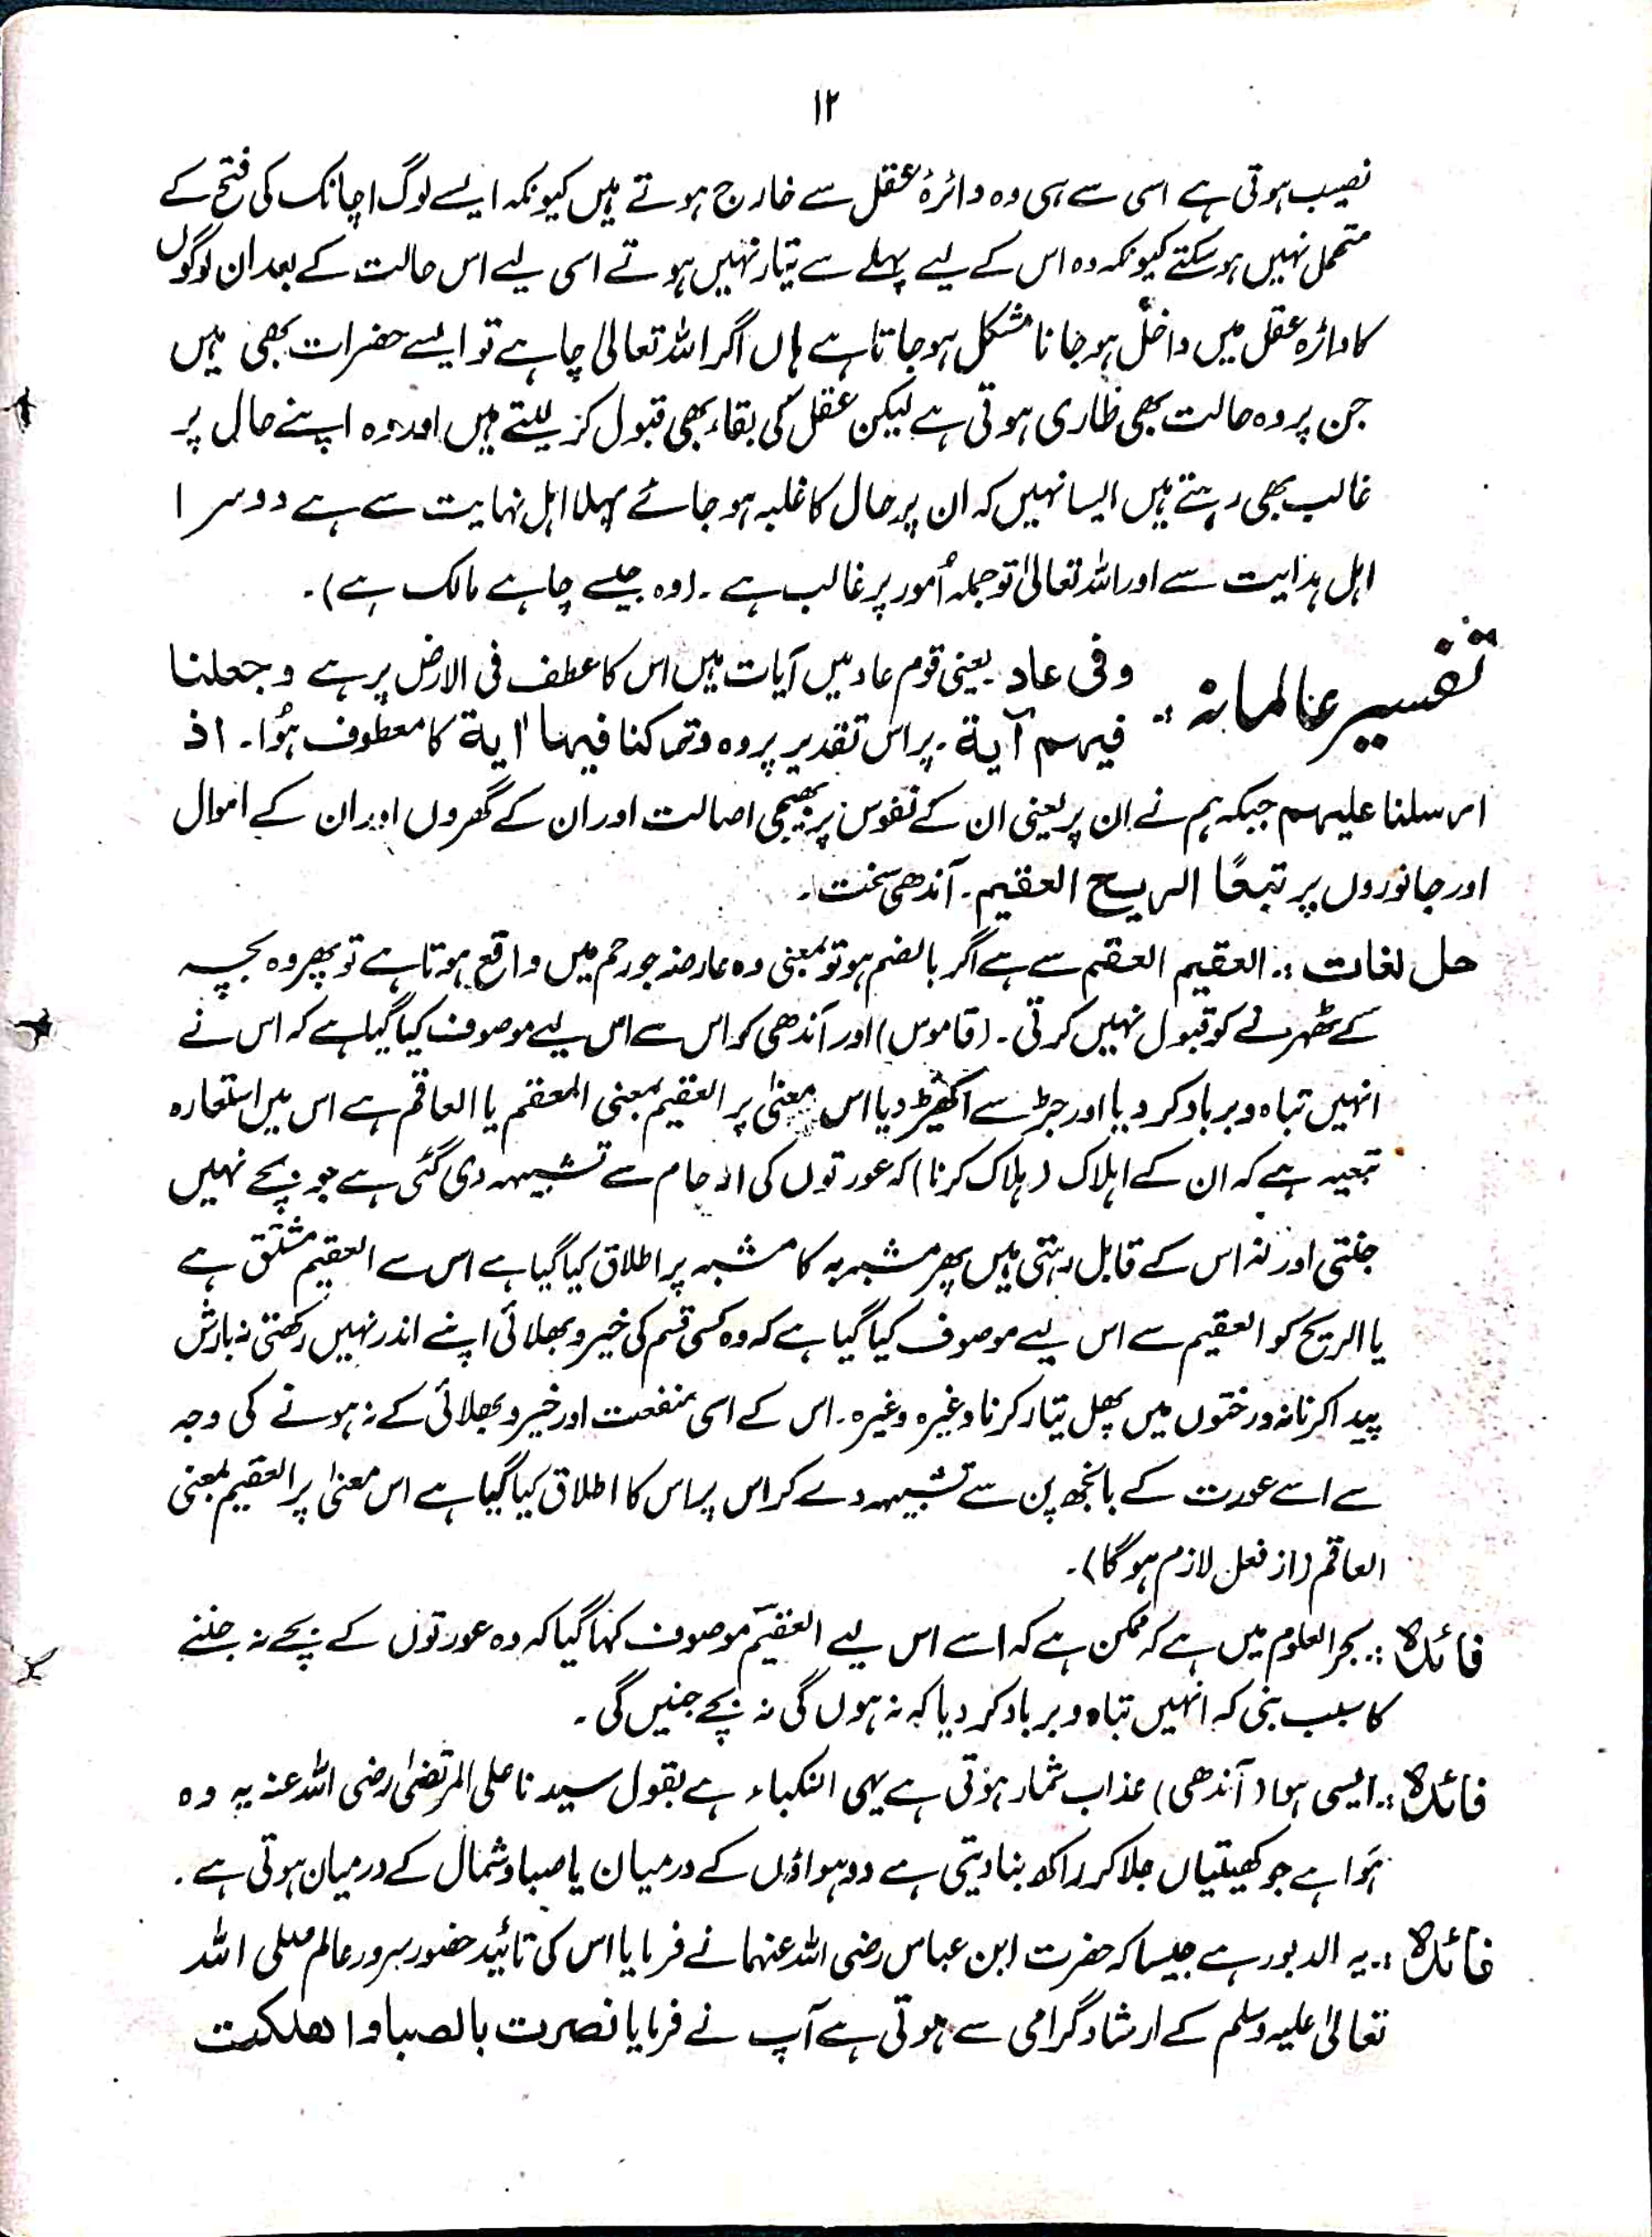 ۱۲
نصیب ہوتی ہے اسی سے ہی وہ دائرۂ عقل سے خارج ہوتے ہیں کیونکہ ایسے لوگ اچانک کی فتح کے
متحمل نہیں ہو سکتے کیونکہ وہ اس کے لیے پہلے سے تیار نہیں ہوتے اسی لیے اس حالت کے بعد ان لوگوں
کا دائرہ عقل میں داخل ہو جانا مشکل ہو جاتا ہے ہاں اگر اللہ تعالیٰ چاہے تو ایسے حضرات بھی ہیں
جن پر وہ حالت بھی طاری ہوتی ہے لیکن عقل کی بقاء بھی قبول کر لیتے ہیں اور وہ اپنے حال پر
غالب بھی رہتے ہیں ایسا نہیں کہ ان پر حال کا غلبہ ہو جائے پہلا اہل نہایت سے ہے دوسرا
اہل بدایت سے اور اللہ تعالیٰ تو جملہ اُمور پر غالب ہے ۔ (وہ جیسے چاہے مالک ہے)۔
تفسیر عالمانہ :۔ وفی عاد یعنی قوم عاد میں آیات ہیں اس کا عطف فی الارض پر ہے وجعلنا
فیہم آیة ۔ پر اس تقدیر پر وہ وترکنا فیہا اٰیة کا معطوف ہُوا۔ اذ
ارسلنا علیہم جبکہ ہم نے ان پر یعنی ان کے نفوس پر بھیجی اصالت اور ان کے گھروں اور ان کے اموال
اور جانوروں پر تبعًا الریح العقیم۔ آندھی سخت۔
حل لغات :۔ العقیم العقم سے ہے اگر بالضم ہو تو بمعنی وہ عارضہ جو رحم میں واقع ہوتا ہے تو پھر وہ بچہ
کے ٹھہرنے کو قبول نہیں کرتی ۔ (قاموس) اور آندھی کو اس سے اس لیے موصوف کیا گیا ہے کہ اس نے
انہیں تباہ و برباد کر دیا اور جڑ سے اکھیڑ دیا اس معنیٰ پر العقیم بمعنی المعقم یا العاقم ہے اس میں استعارہ
تبعیہ ہے کہ ان کے اہلاک (ہلاک کرنا) کہ عورتوں کی ارحام سے تشبیہہ دی گئی ہے جو بچے نہیں
جنتی اور نہ اس کے قابل رہتی ہیں پھر مشبہ بہ کا مشبہ پر اطلاق کیا گیا ہے اس سے العقیم مشتق ہے
یا الریح کو العقیم سے اس لیے موصوف کیا گیا ہے کہ وہ کسی قسم کی خیر و بھلائی اپنے اندر نہیں رکھتی نہ بارش
پیدا کرنا نہ درختوں میں پھل تیار کرنا وغیرہ وغیرہ ۔ اس کے اسی منفعت اور خیر و بھلائی کے نہ ہونے کی وجہ
سے اسے عورت کے بانجھ پن سے تشبیہہ دے کر اس پر اس کا اطلاق کیا گیا ہے اس معنیٰ پر العقیم بمعنی
العاقم (از فعل لازم ہوگا)۔
فائدہ :۔ بحر العلوم میں ہے کہ ممکن ہے کہ اسے اس لیے العقیم موصوف کہا گیا کہ وہ عورتوں کے بچے نہ جننے
کا سبب بنی کہ انہیں تباہ و برباد کر دیا کہ نہ ہوں گی نہ بچے جنیں گی ۔
فائدہ :۔ ایسی ہوا (آندھی) عذاب شمار ہوتی ہے یہی النکباء ہے بقول سیدنا علی المرتضیٰ رضی اللہ عنہ یہ وہ
ہَوا ہے جو کھیتیاں جلا کر راکھ بنا دیتی ہے دو ہواؤں کے درمیان یا صبا و شمال کے درمیان ہوتی ہے ۔
فائدہ :۔ یہ الدبور ہے جیسا کہ حضرت ابن عباس رضی اللہ عنہما نے فرمایا اس کی تائید حضور سرور عالم صلی اللہ
تعالیٰ علیہ وسلم کے ارشاد گرامی سے ہوتی ہے آپ نے فرمایا نصرت بالصبا واھلکت